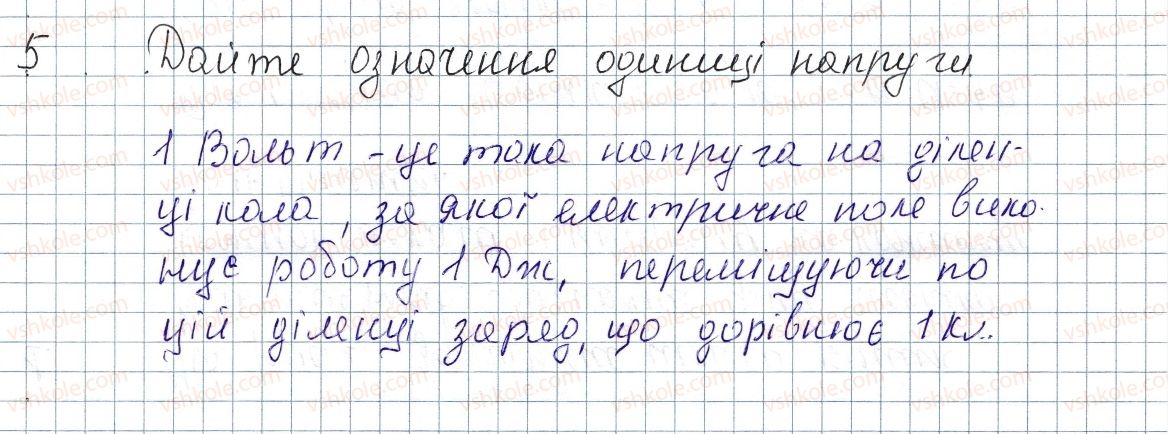 5. Дайте означення одиниці напруги.
1 Вольт - це така напруга на ділян-
ці кола, за якої електричне поле вико-
нує роботу 1 Дж, переміщуючи по
цій ділянці заряд, що дорівнює 1 Кл.